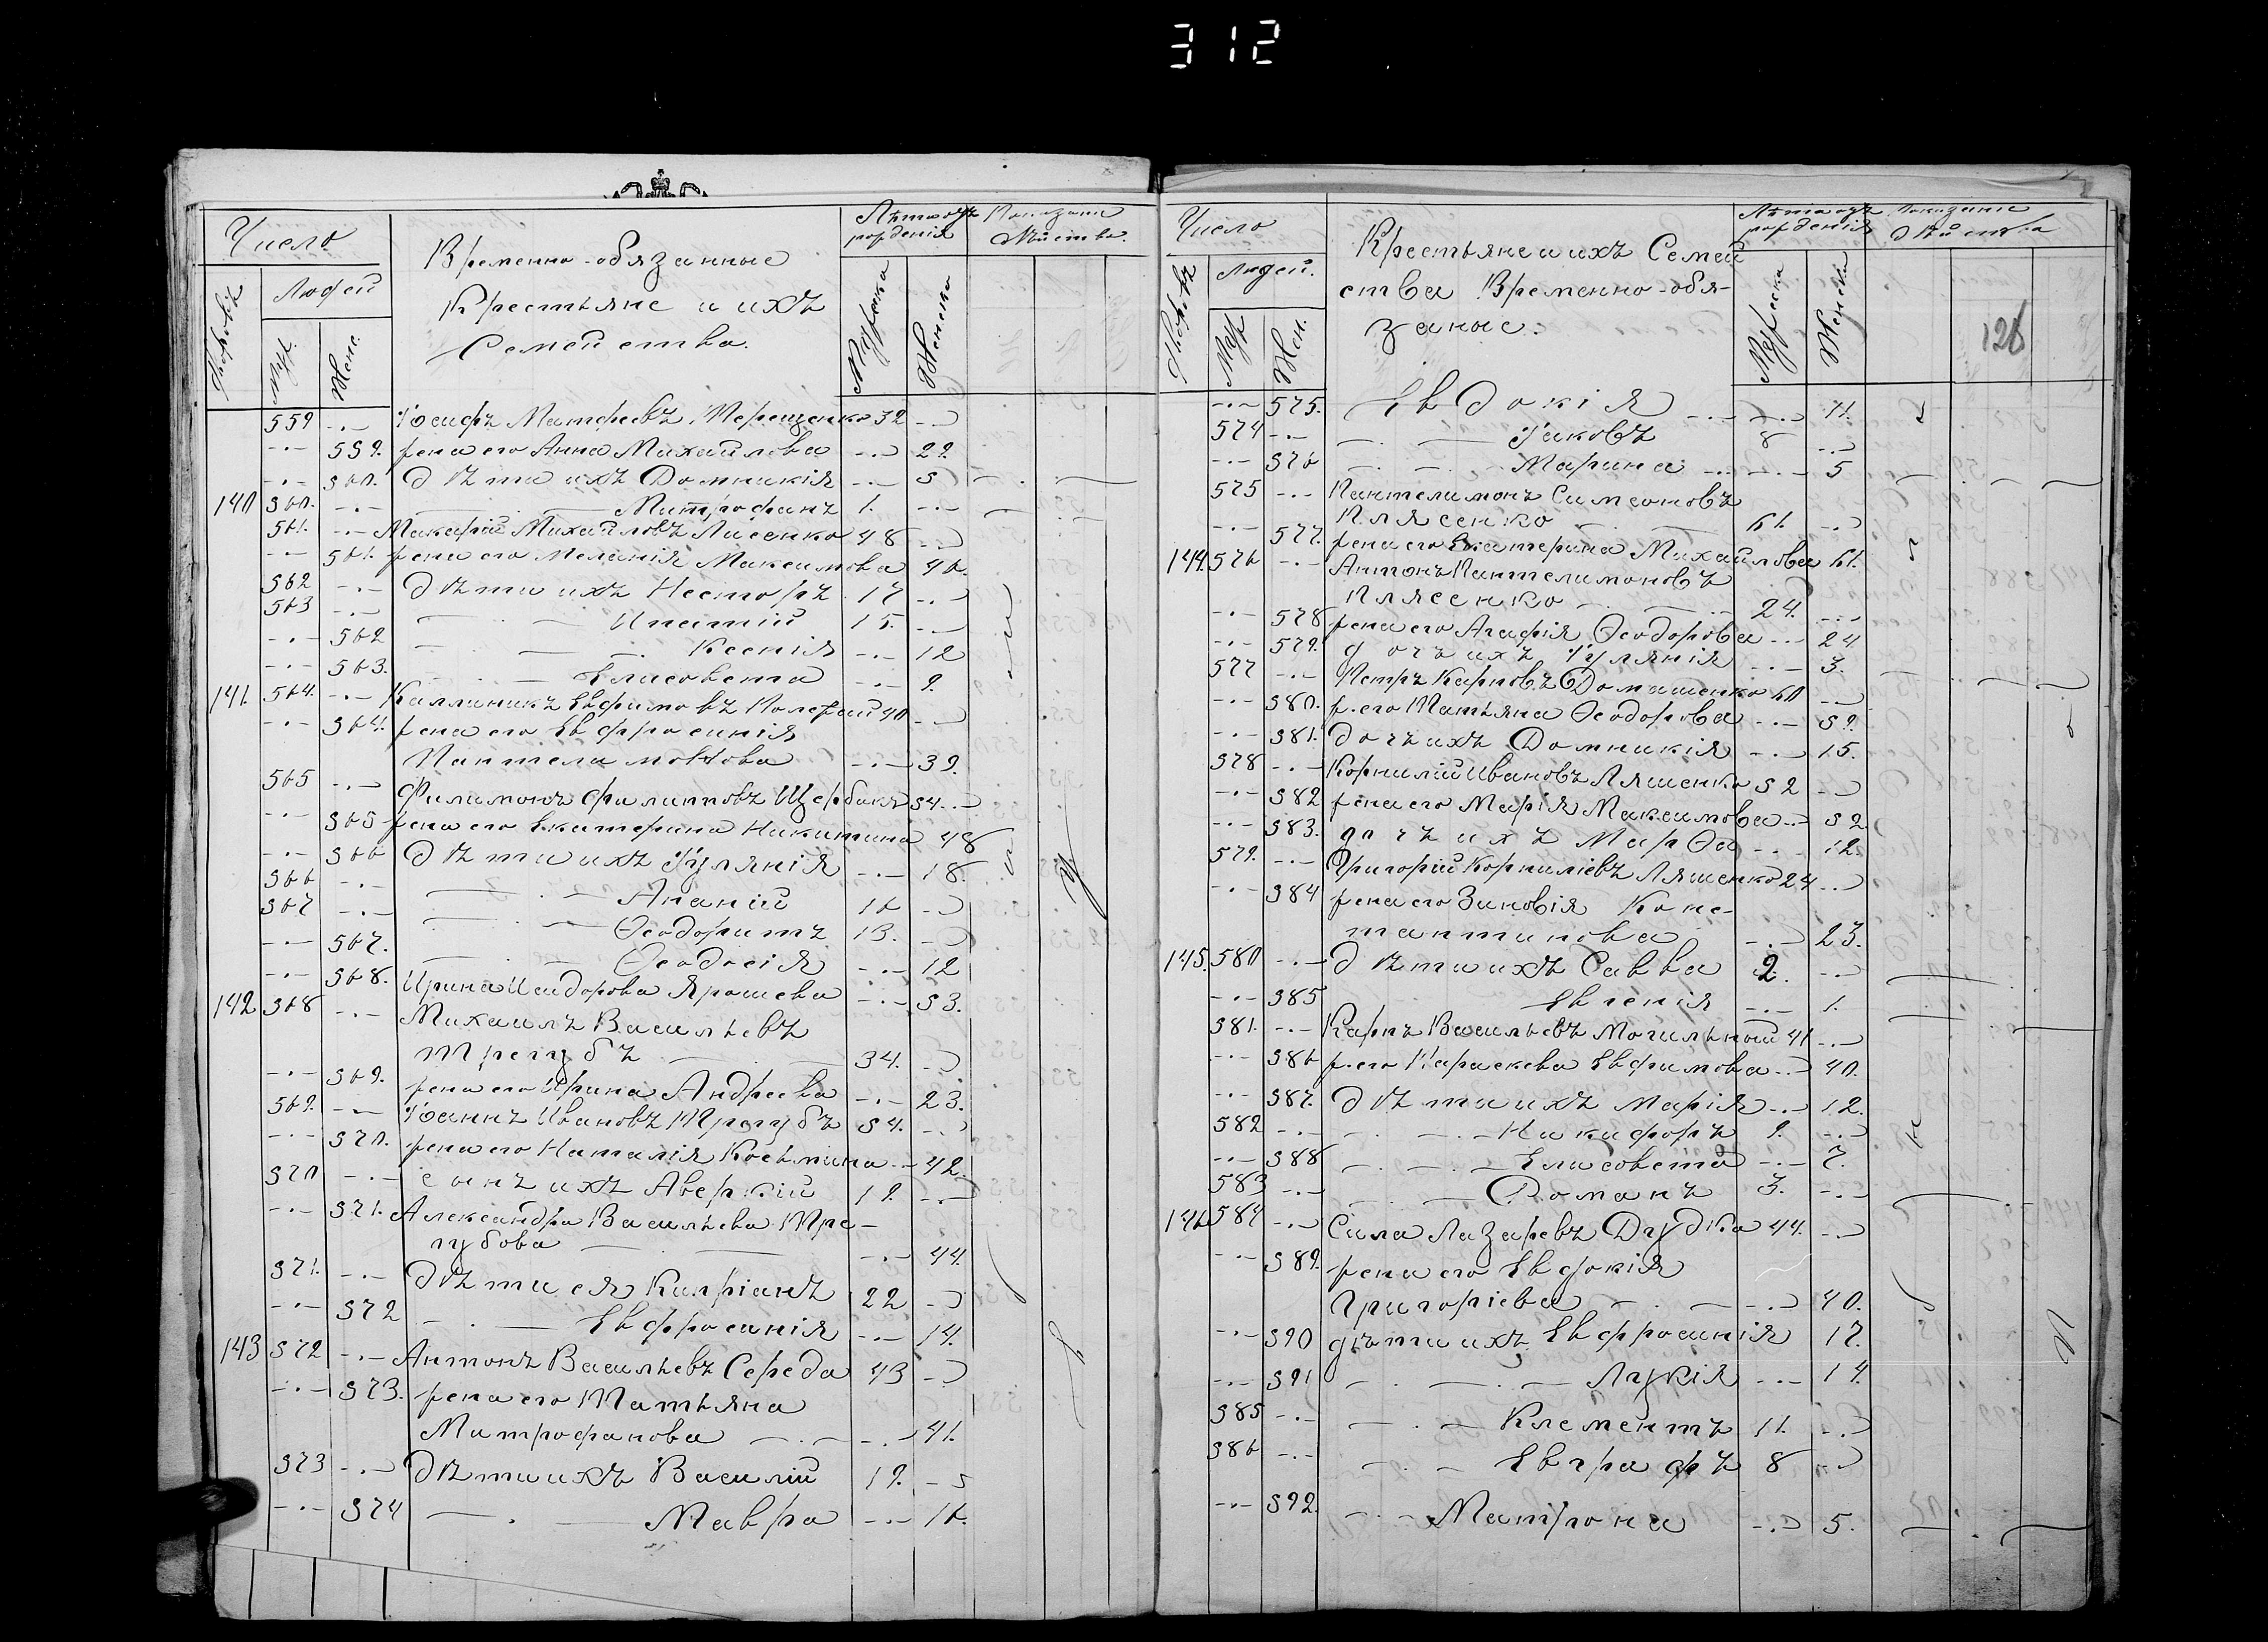 312
Число
Людей
Муж.
Женс.
Временно-обязанные
Крестьяне и ихъ
Семейства.
Лѣта отъ рожденія
Мужеска
Женска
559 -.- Іосифъ Матфеевъ Терещенко 32 -.-
-.- 559. жена его Анна Михайлова -.- 29.
-.- 560. дѣти ихъ Домникія -.- 5
140 560. -.- Митрофанъ 1. -.-
561. -.- Макарій Михайловъ Лисенко 48 -.-
-.- 561. жена его Меланія Максимова 46.
562 -.- дѣти ихъ Несторъ 17 -.-
563 -.- Ипатій 15. -.-
-.- 562 Ксенія -.- 12
-.- 563. Елисовета -.- 9.
141. 564. -.- Каллиникъ Евфимовъ 40 -.-
-.- 564. жена его Евфросинія
Пантелимонова -.- 39.
565 -.- Филимонъ Филиповъ Щербакъ 54 -.-
-.- 565 жена его Екатерина Никитина 48
-.- 566 дѣти ихъ Іуліянія -.- 18.
566 -.- Ананій 16 -.-
567 -.- Ѳеодоритъ 13. -.-
-.- 567. Ѳеодосія -.- 12
-.- 568. Ирина Исидорова Ярошева -.- 53.
142 568 -.- Михаилъ Васильевъ
Трегубъ 34. -.-
-.- 569. жена его Ирина Андреева -.- 23.
569. -.- Іоаннъ Ивановъ Трегубъ 54. -.-
-.- 570. жена его Наталія Косьмина -.- 42.
570 -.- сынъ ихъ Аверкій 19. -.-
-.- 571. Александра Васильева Тре-
губова -.- 44.
571. -.- дѣти ея Кипріанъ 22 -.-
-.- 572 Евфросинія -.- 14.
143 572 -.- Антонъ Васильевъ Середа 43 -.-
-.- 573. жена его Татьяна
Митрофанова -.- 41.
573 -.- дѣти ихъ Василій 19. -.-
-.- 574 Мавра -.- 16.
Число
Людей.
Муж
Жен.
Крестьяне и ихъ Семей
ства Временно-обя-
заные.
Лѣта отъ рожденія
Мужеска
Женска
126
-.- 575. Евдокія -.- 11.
574 -.- Іаковъ 8 -.-
-.- 576 Марина -.- 5
575 -.- Пантелимонъ Симеоновъ
Плясенко 61. -.-
-.- 577. жена его Екатерина Михайлова 61.
144. 576 -.- Антонъ Пантелимоновъ
Плясенко 24. -.-
-.- 578 жена его Агафія Ѳеодорова -.- 24
-.- 579. дочъ ихъ Іуліянія -.- 3.
577 -.- Петръ Карповъ Домашенко 60 -.-
-.- 580. ж. его Татьяна Ѳеодорова -.- 59.
-.- 581. дочъ ихъ Домникія -.- 15.
578 -.- Корнилій Ивановъ Ляшенко 52 -.-
-.- 582 жена его Марія Максимова -.- 52.
-.- 583. дочъ ихъ Марѳа -.- 12.
579. -.- Григорій Корниліевъ Ляшенко 24 -.-
-.- 584 жена его Зиновія Конс-
тантинова -.- 23.
145. 580 -.- дѣти ихъ Савва 2. -.-
-.- 585 Евгенія -.- 1.
581. -.- Карпъ Васильевъ Могильный 41 -.-
-.- 586 ж. его Параскева Евфимова -.- 40.
-.- 587. дѣти ихъ Марія -.- 12.
582 -.- Никифоръ 9. -.-
-.- 588 Елисовета -.- 7.
583 -.- Романъ 3. -.-
146 584 -.- Сила Лазаревъ Дудка 44. -.-
-.- 589. жена его Евдокія
Григоріева -.- 40.
-.- 590 дѣти ихъ Евфросинія 17.
-.- 591 Лукія -.- 14.
585 -.- Климентъ 11. -.-
586 -.- Евграфъ 8 -.-
-.- 592. Матрона -.- 5.